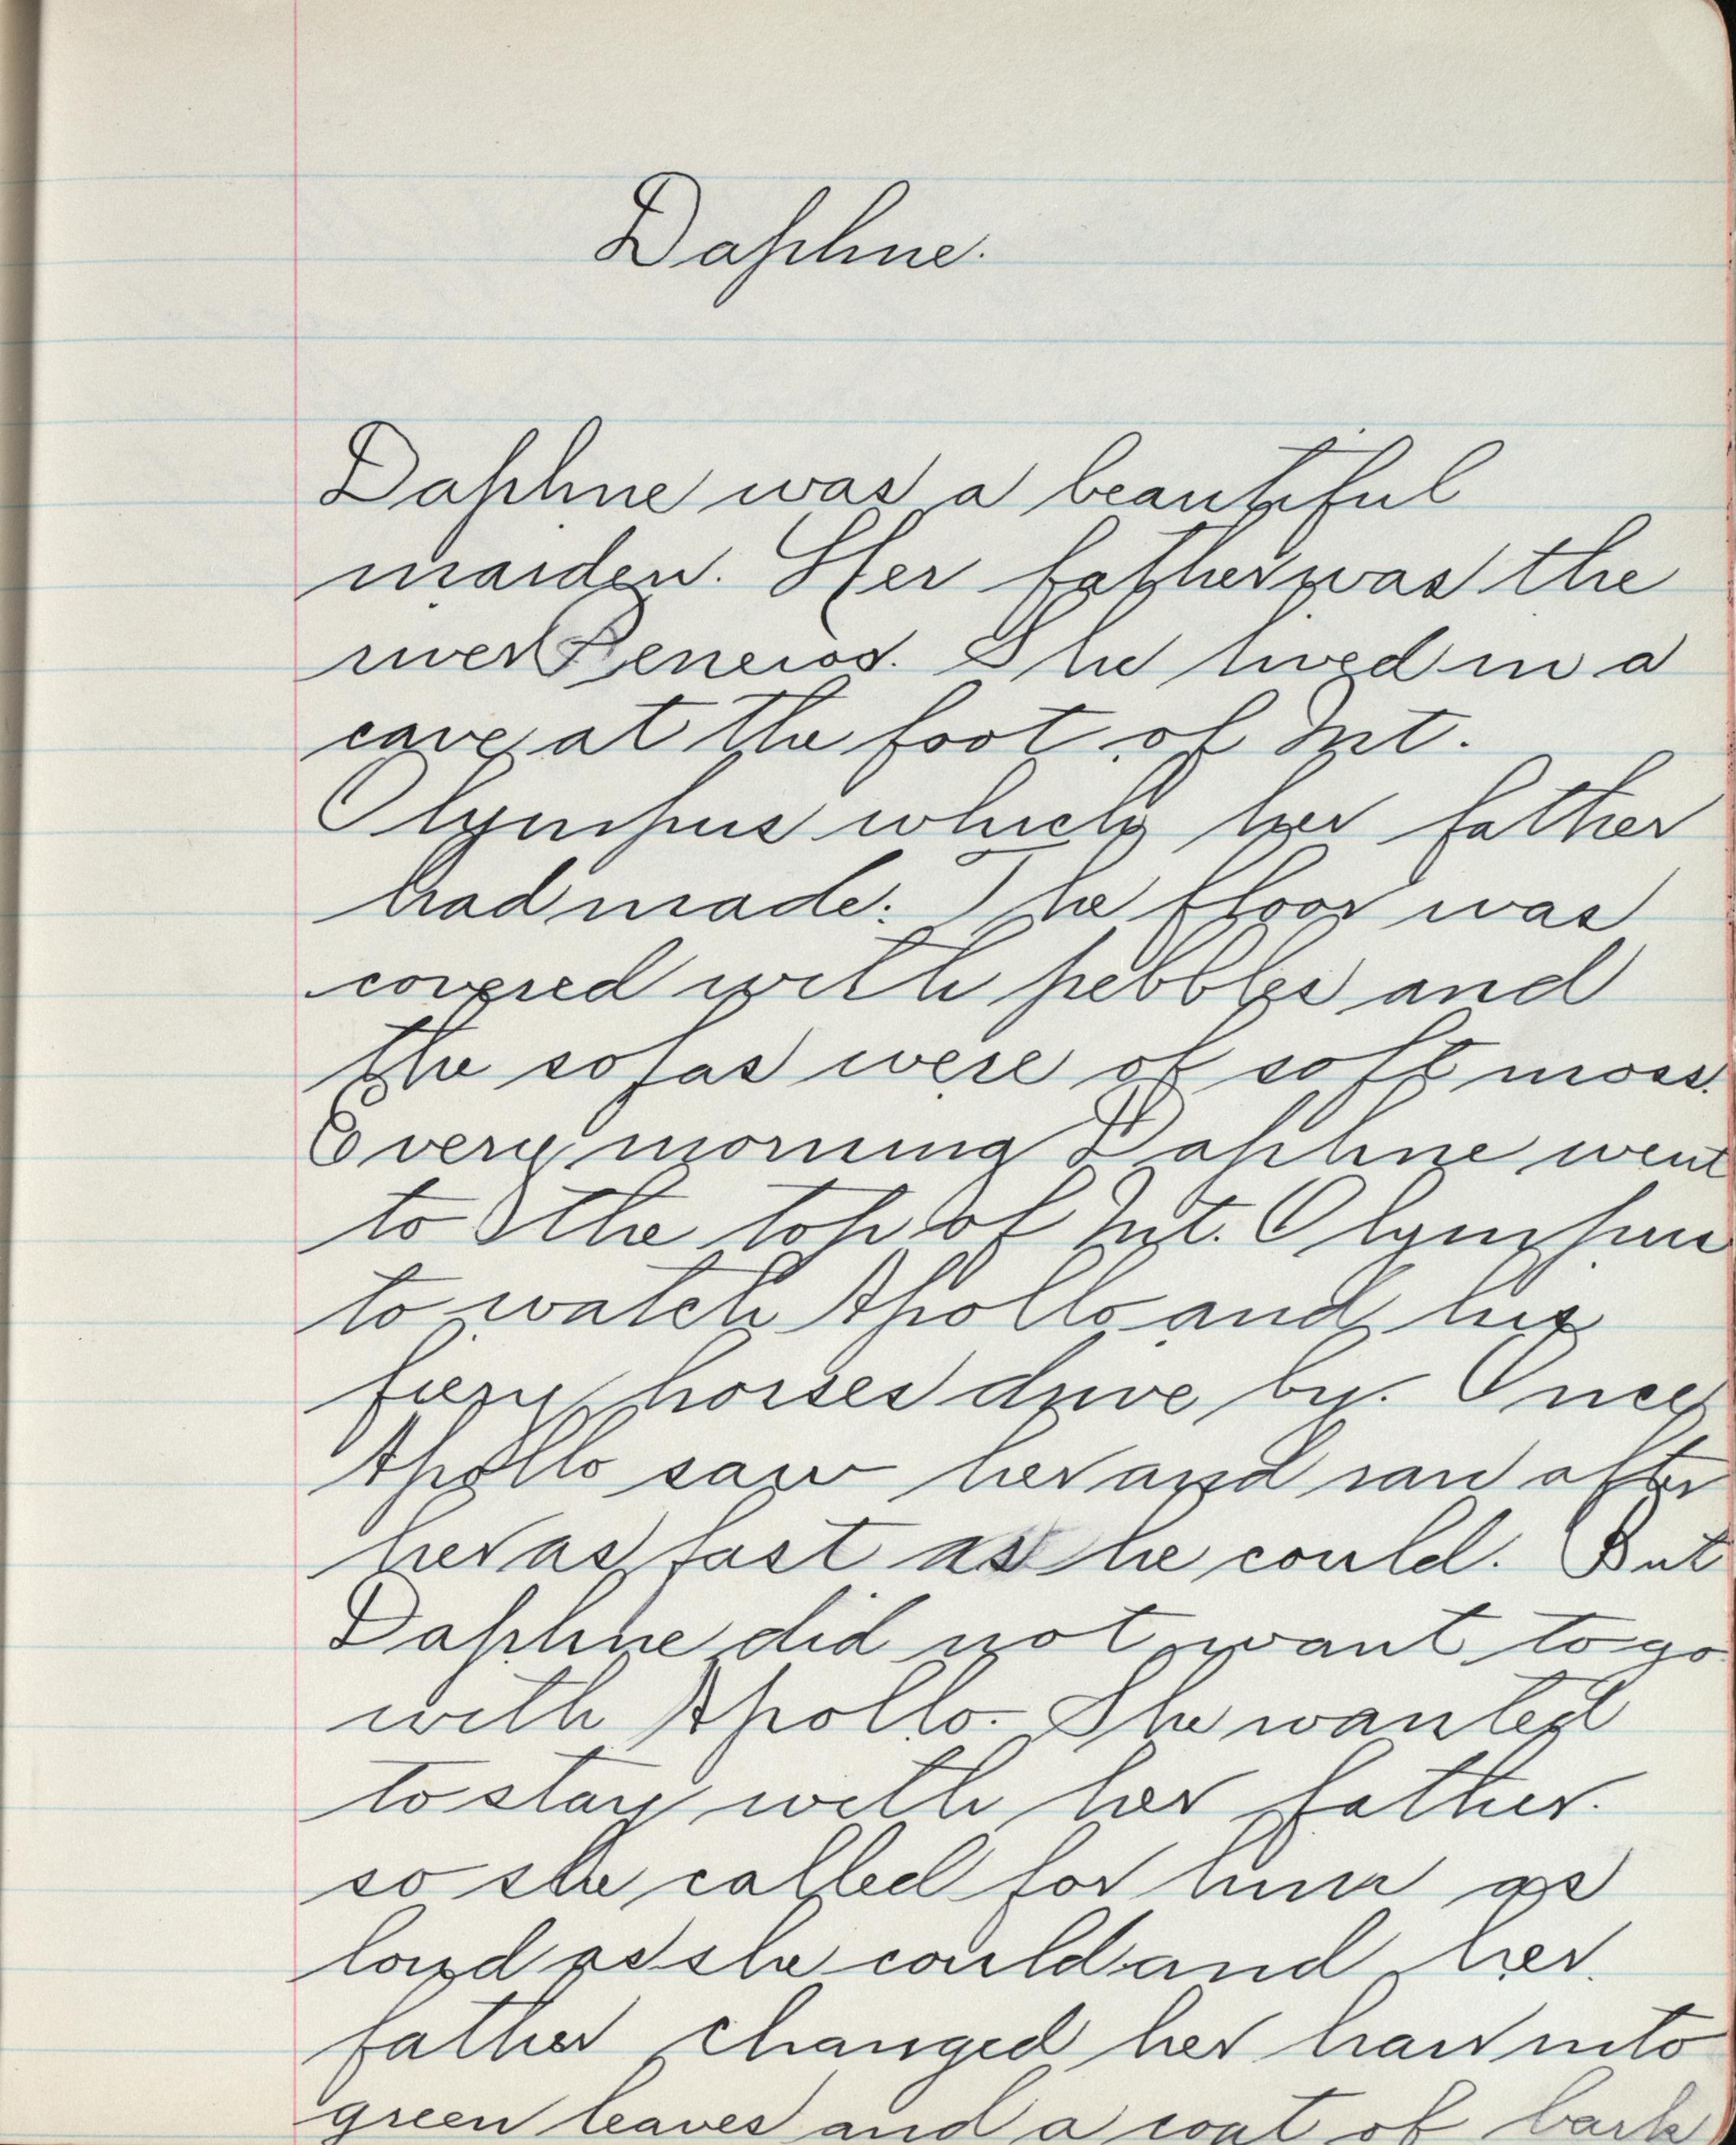 Daphne.
Daphne was a beautiful
maiden. Her father was the
river Peneios. She lived in a
cave at the foot of Mt.
Olympus which her father
had made. The floor was
covered with pebbles and
the sofas were of soft moss.
Every morning Daphne went
to the top of Mt. Olympus
to watch Apollo and his
fiery horses drive by. Once
Apollo saw her and ran after
her as fast as he could. But
Daphne did not want to go
with Apollo. She wanted
to stay with her father.
so she called for him as
loud as she could and her
father changed her hair into
green leaves and a coat of bark